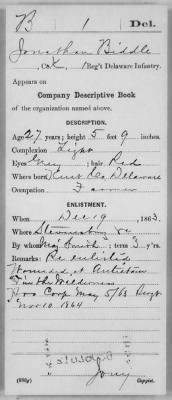 B | 1 | Del.
Jonathan Biddle
, Co. K, 1 Reg't Delaware Infantry.
Appears on
Company Descriptive Book
of the organization named above.
DESCRIPTION.
Age 27 years; height 5 feet 9 inches.
Complexion Light
Eyes Grey ; hair Red
Where born Kent Co, Delaware
Occupation Farmer
ENLISTMENT.
When Dec 19 , 1863.
Where Stevensburg Va
By whom Maj Smith ; term 3 y'rs.
Remarks: Re enlisted
Wounded at Antietam
& in the Wilderness
Pro Corp May 5/63 Sergt
Nov 10. 1864
Copyist.